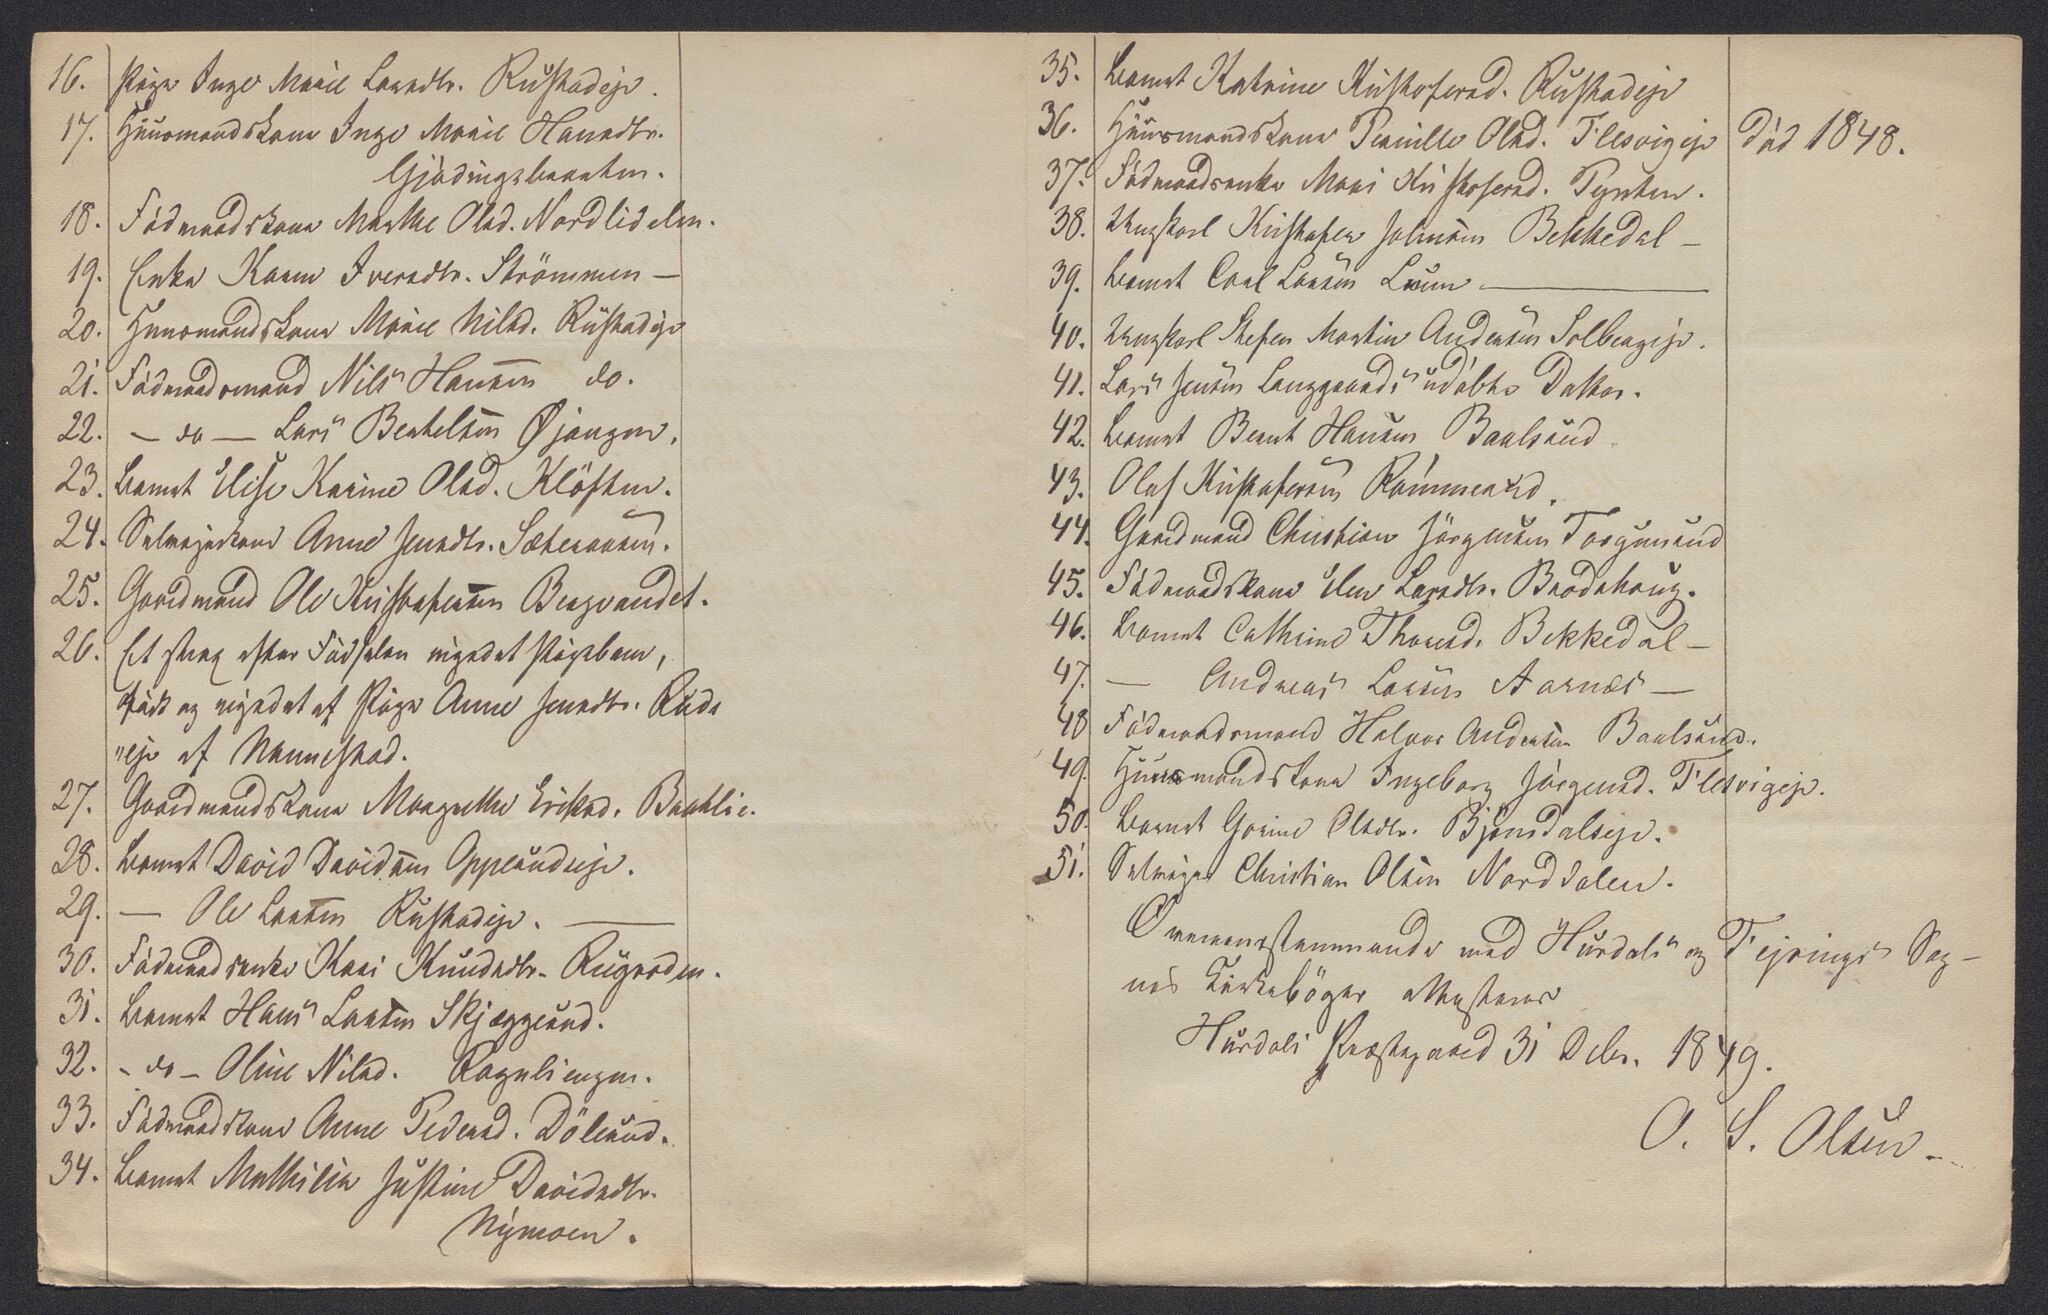 16. Pige Inge Marie Larsdtr. Rustadeje.
17. Huusmandskone Inge Marie Hansdtr.
Gjødingsbraaten.
18. Födraadskone Marthe Olsd. Nordlidalen.
19. Enke Karen Iversdtr. Strömmen —
20. Huusmandskone Marie Nilsd. Rustadeje
21. Födraadsmand Nils Hansen do.
22. — do — Lars Berthelsen Øjangen.
23. Barnet Elise Karine Olsd. Klöften.
24. Selvejerkone Anne Jensdtr. Sæteraasen.
25. Gaardmand Ole Kristofersen Bergvandet.
26. Et strax efter Födselen Pigebarn,
født og af Pige Anne Jensdtr. Ruds
"eje af Nannestad.
27. Gaardmandskone Margrethe Eriksd. Brathlie.
28. Barnet David Davidsen Opplundeje.
29. — Ole Larsen Rustadeje. —
30. Födraadsenke Kari Knudsdtr. Rugroden.
31. Barnet Hans Larsen Skjæggrud.
32. - do - Oline Nilsd. Rognliengen.
33. Födraadskone Anne Pedersd. Dölerud.
34. Barnet Mathilie Justine Davidsdtr.
Nymoen.
35. Barnet Katrine Kristofersd. Rustadeje
36. Huusmandskone Pernille Olsd. Flesvigeje död 1848.
37. Födraadsenke Mari Kristofersd. Tynten.
38. Ungkarl Kristofer Johnsen Bekkedal —
39. Barnet Carl Larsen Luun —
40. Ungkarl Steffen Martin Andersen Solbergeje.
41. Lars Jensen Langgaards udöbte Datter.
42. Barnet Bernt Hansen Baalsrud.
43. Oluf Kristofersen Römmerud.
44. Gaardmand Christian Jörgensen Torgunrud
45. Födraadskone Elen Larsdtr. Brodshoug.
46. Barnet Cathrine Thorsd. Bekkedal —
47. — Andreas Larsen Aarnæs —
48 Födraadsmand Halvor Andersen Baalsrud.
49. Huusmandskone Ingeborg Jörgensd. Flesvigeje.
50. Barnet Gorine Olsdtr. Bjöndalseje.
51. Selvejer Christian Olsen Norddalen.
Overensstemmende med Hurdals og Fejrings Sog-
nes Kirkebøger attesteres
Hurdals Præstegaard 31 Debr. 1849.
O. S. Olsen.